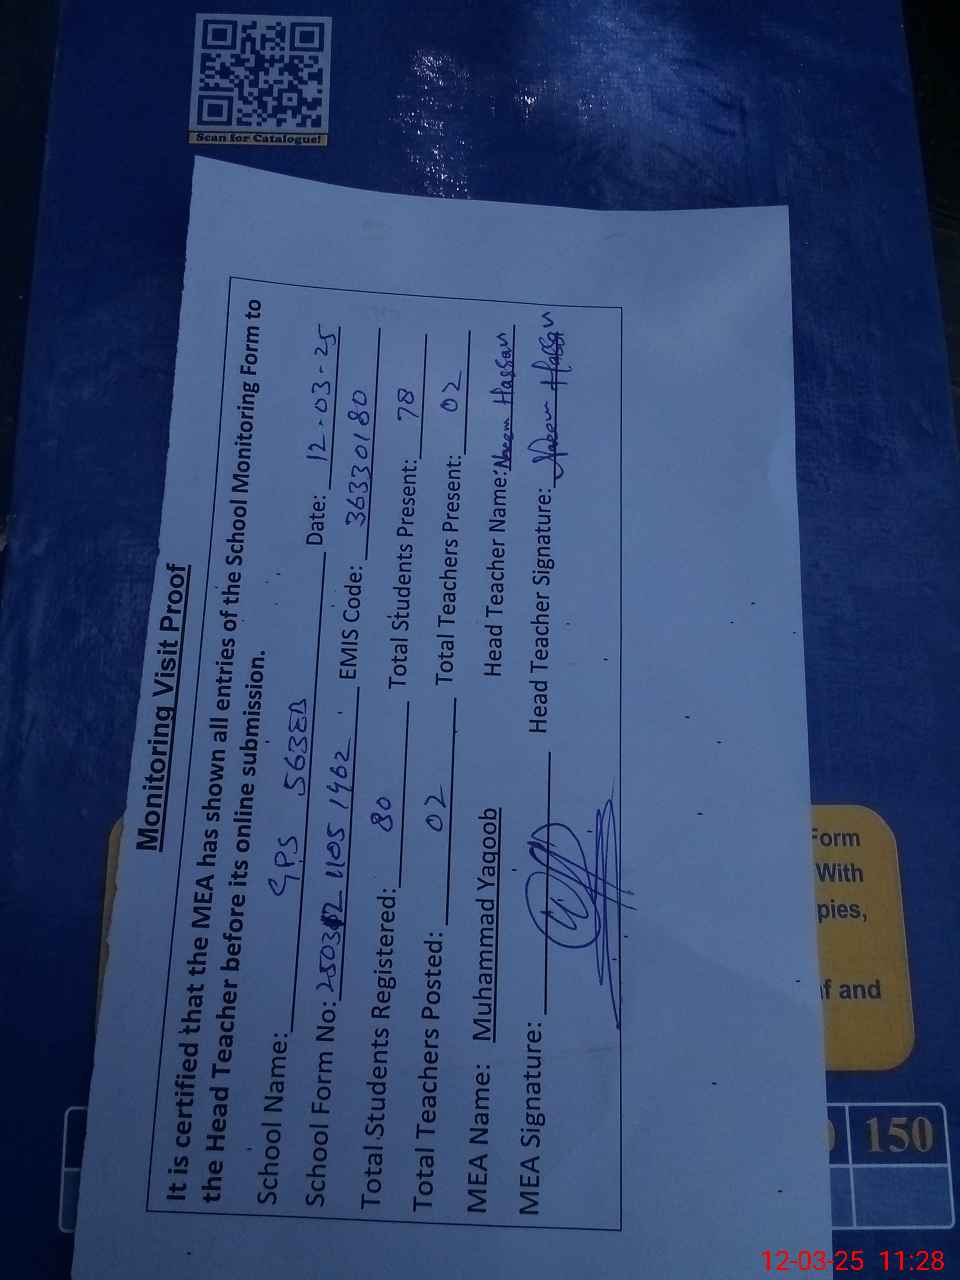 Scan for Catalogue!
Monitoring Visit Proof
It is certified that the MEA has shown all entries of the School Monitoring Form to
the Head Teacher before its online submission.
School Name: GPS 563EB Date: 12-03-25
School Form No: 250312 1105 1462 EMIS Code: 36330180
Total Students Registered: 80 Total Students Present: 78
Total Teachers Posted: 02 Total Teachers Present: 02
MEA Name: Muhammad Yaqoob Head Teacher Name: Naeem Hassan
MEA Signature: Head Teacher Signature: Naeem Hassan
Form
With
pies,
and
150
12-03-25 11:28